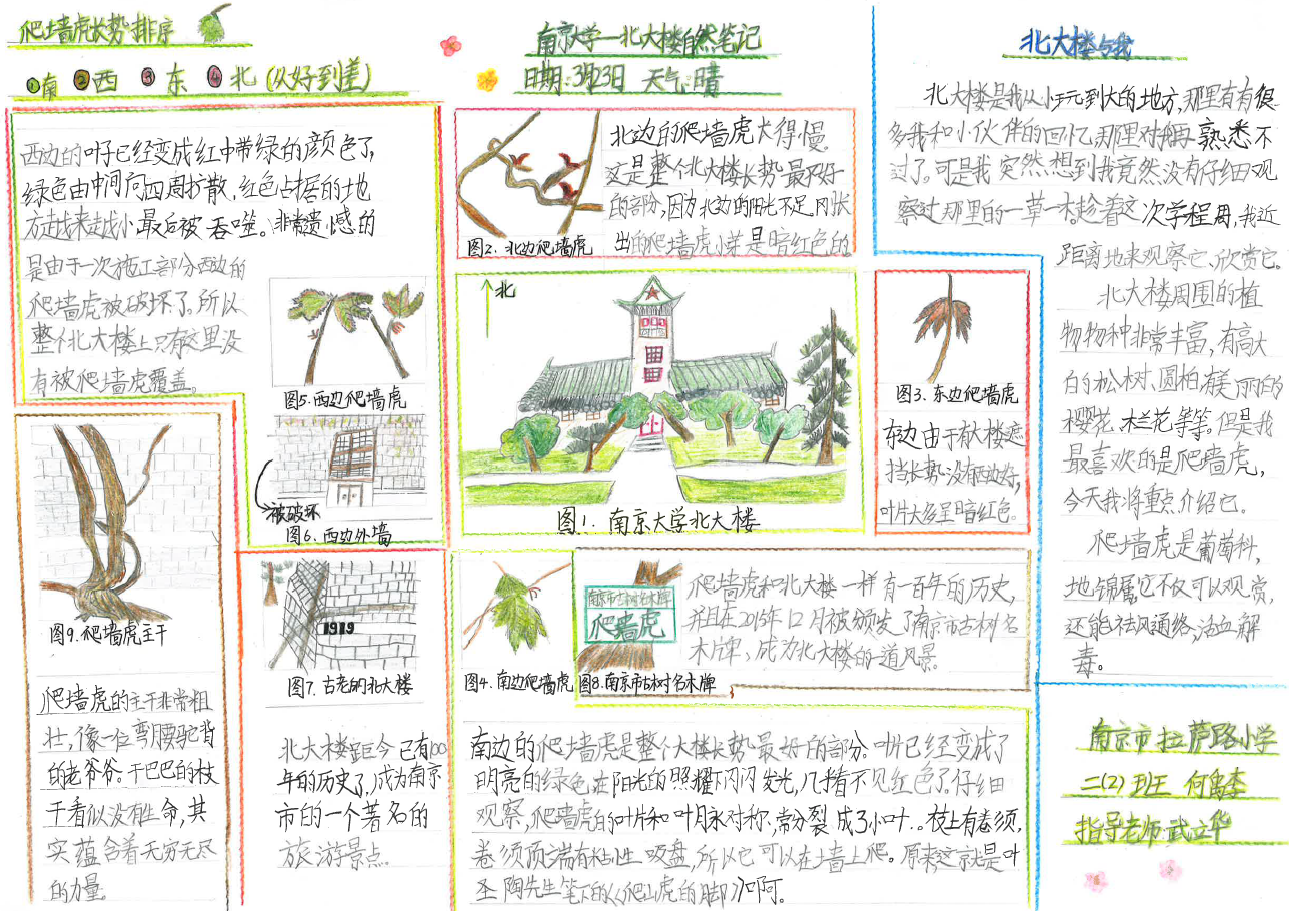 爬墙虎长势排序
①南 ②西 ③东 ④北(从好到差)
西边的叶子已经变成红中带绿的颜色了,
绿色由中间向四周扩散,红色占据的地
方越来越小最后被吞噬。非常遗憾的
是由于一次施工部分西边的
爬墙虎被破坏了。所以
整个北大楼上只有这里没
有被爬墙虎覆盖。
图5.西边爬墙虎
被破坏
图6.西边外墙
图9.爬墙虎主干
爬墙虎的主干非常粗
壮,像一位弯腰驼背
的老爷爷。干巴巴的枝
干看似没有生命,其
实蕴含着无穷无尽
的力量。
1919
图7.古老的北大楼
北大楼距今已有100
年的历史了,成为南京
市的一个著名的
旅游景点.
南京大学—北大楼自然笔记
日期:3月23日 天气:晴
图2.北边爬墙虎
北边的爬墙虎长得慢。
这是整个北大楼长势最不好
的部分,因为北边的阳光不足,刚长
出的爬墙虎小芽是暗红色的
北
图1.南京大学北大楼
图3.东边爬墙虎
东边由于有大楼遮
挡长势没有西边好,
叶片大多呈暗红色。
图4.南边爬墙虎
南京市古树名木牌
爬墙虎
图8.南京市古树名木牌
爬墙虎和北大楼一样有一百年的历史,
并且在2015年12月被颁发了南京市古树名
木牌,成为北大楼的一道风景.
南边的爬墙虎是整个大楼长势最好的部分.叶片已经变成了
明亮的绿色,在阳光的照耀下闪闪发光,几乎看不见红色了.仔细
观察,爬墙虎的叶片和叶脉对称,常分裂成3小叶.。枝上有卷须,
卷须顶端有粘性吸盘,所以它可以在墙上爬。原来这就是叶
圣陶先生笔下的《爬山虎的脚》啊。
北大楼与我
北大楼是我从小玩到大的地方,那里有有很
多我和小伙伴的回忆,那里对我再熟悉不
过了。可是我突然想到我竟然没有仔细观
察过那里的一草一木。趁着这次学程周,我近
距离地来观察它、欣赏它。
北大楼周围的植
物物种非常丰富,有高大
的松树、圆柏,有美丽的
樱花、木兰花等等。但是我
最喜欢的是爬墙虎,
今天我将重点介绍它。
爬墙虎是葡萄科,
地锦属,它不仅可以观赏,
还能祛风通络,活血解
毒。
南京市拉萨路小学
二(2)班 何禹李
指导老师:武立华